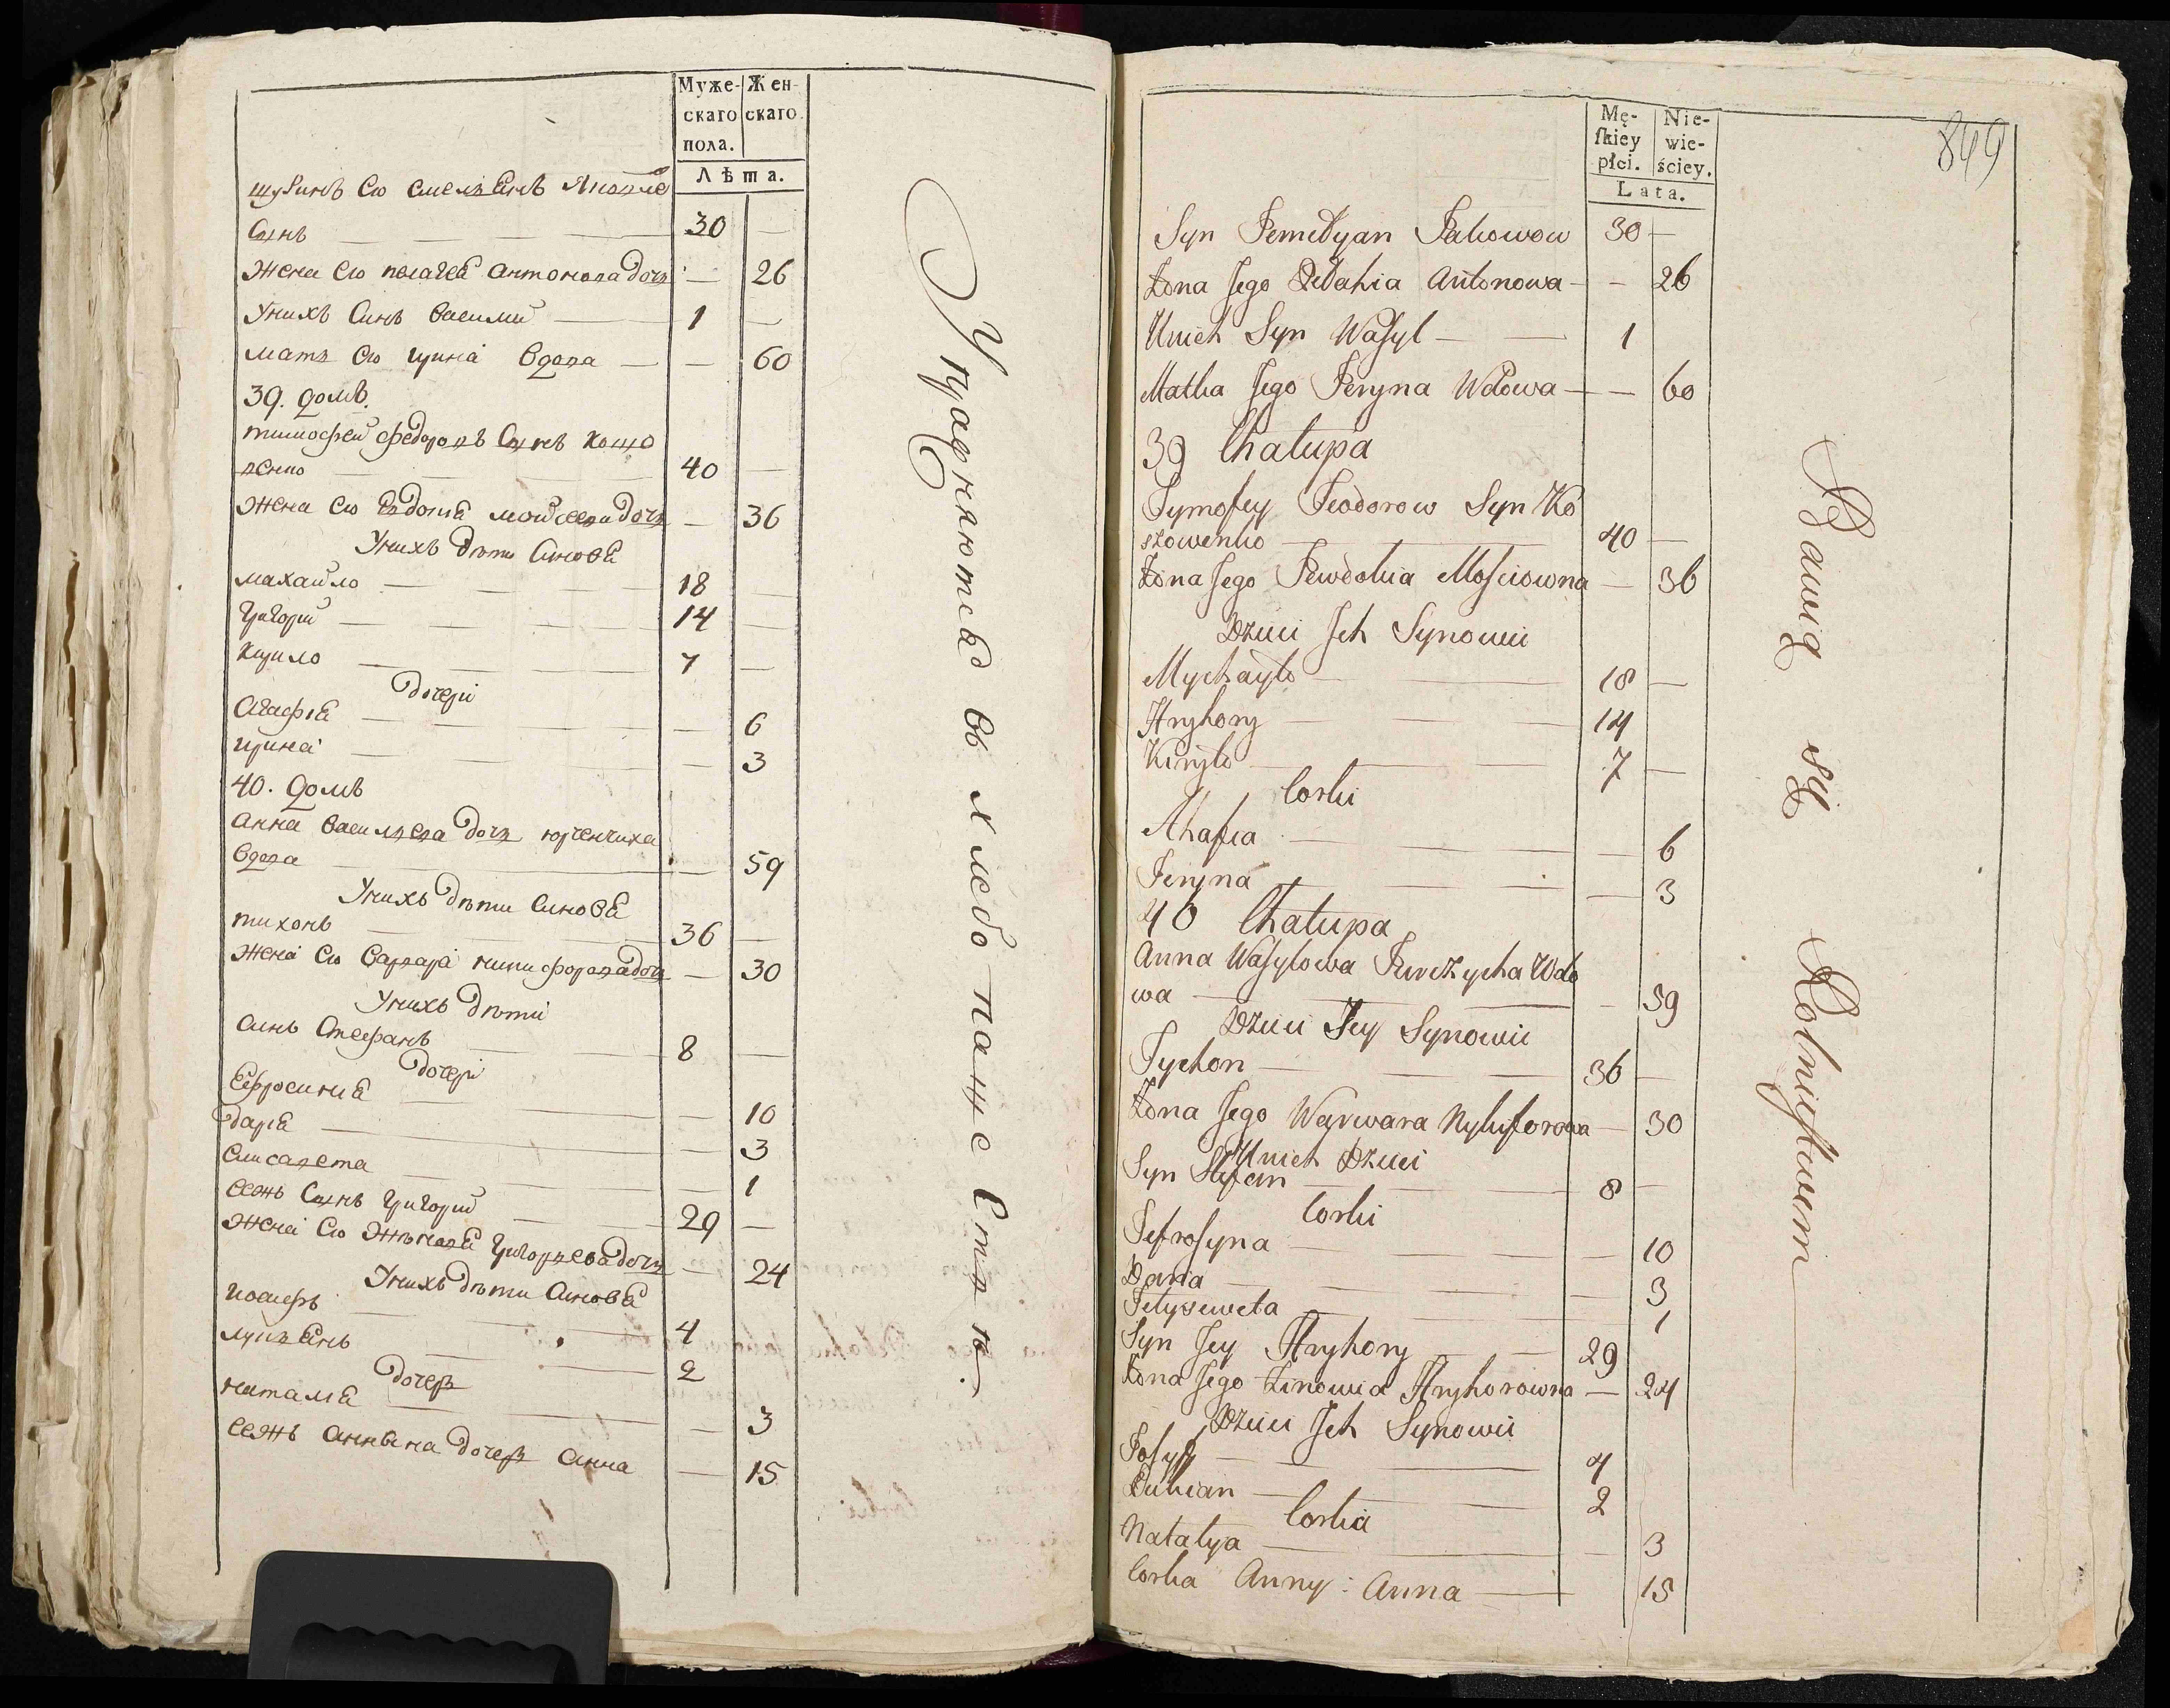 Муже-
скаго
пола.
Жен-
скаго.
Лѣта.
шуринъ єго емелянъ Яковле
Сынъ — 30 —
Жена єго пелагея антонова дочь — 26
Унихъ Синъ василий — 1 —
мать єго ирина вдова — 60
39. домъ.
тимофей федоровъ Сынъ кошо
венко — 40 —
Жена єго Евдокия мойсеева дочь — 36
Унихъ дѣти Синовя
махайло — 18 —
григорий — 14 —
кирило — 7 —
дочери
Агафия — 6
ирина — 3
40. домъ
анна васильева дочь юрченчиха
вдова — 59
Унихъ дѣти Синовя
тихонъ — 36 —
Жена єго варвара никифорова дочь — 30
Унихъ дѣти
синъ Стефанъ — 8 —
дочери
Ефросиния — 10
дария — 3
елисавета — 1
ееяжъ Сынъ григорий — 29 —
Жена єго Зѣновия григорьева дочь — 24
Унихъ дѣти Синовя
иосифъ — 4
лукьянъ — 2
дочерь
наталия — 3
ееяжъ аннына дочерь анна — 15
Упражняются въ хлебопашестве.
849
Mę-
skiey
płci.
Nie-
wie-
ściey.
Lata.
Syn Jemelyan Jakowow 30 —
Żona Jego Pelahia Antonowa — 26
Unich Syn Wasyl — 1
Matka Jego Jeryna Wdowa — 60
39 Chałupa
Tymofey Teodorow Syn Ko
szowenko — 40 —
Żona Jego Jewdokia Mosiowna — 36
Dzieci Jch Synowie
Mychayło — 18 —
Hryhory — 14
Kiryło — 7 —
Corki
Ahafia — 6
Jeryna — 3
40 Chałupa
Anna Wasylowa Jurczycha Wdo
wa — 59
Dzieci Jey Synowie
Tychon — 36 —
Żona Jego Warwara Nykiforowa — 30
Unich Dzieci
Syn Stefan — 8 —
Corki
Jefrosyna — 10
Daria — 3
Jełyseweta — 1
Syn Jey Hryhory — 29
Żona Jego Zinowia Hryhorowna — 24
Dzieci Jch Synowie
Josyf — 4
Łukian — 2
Corka
Natalya — 3
Corka Anny: Anna — 15
Bawią się Rolnictwem